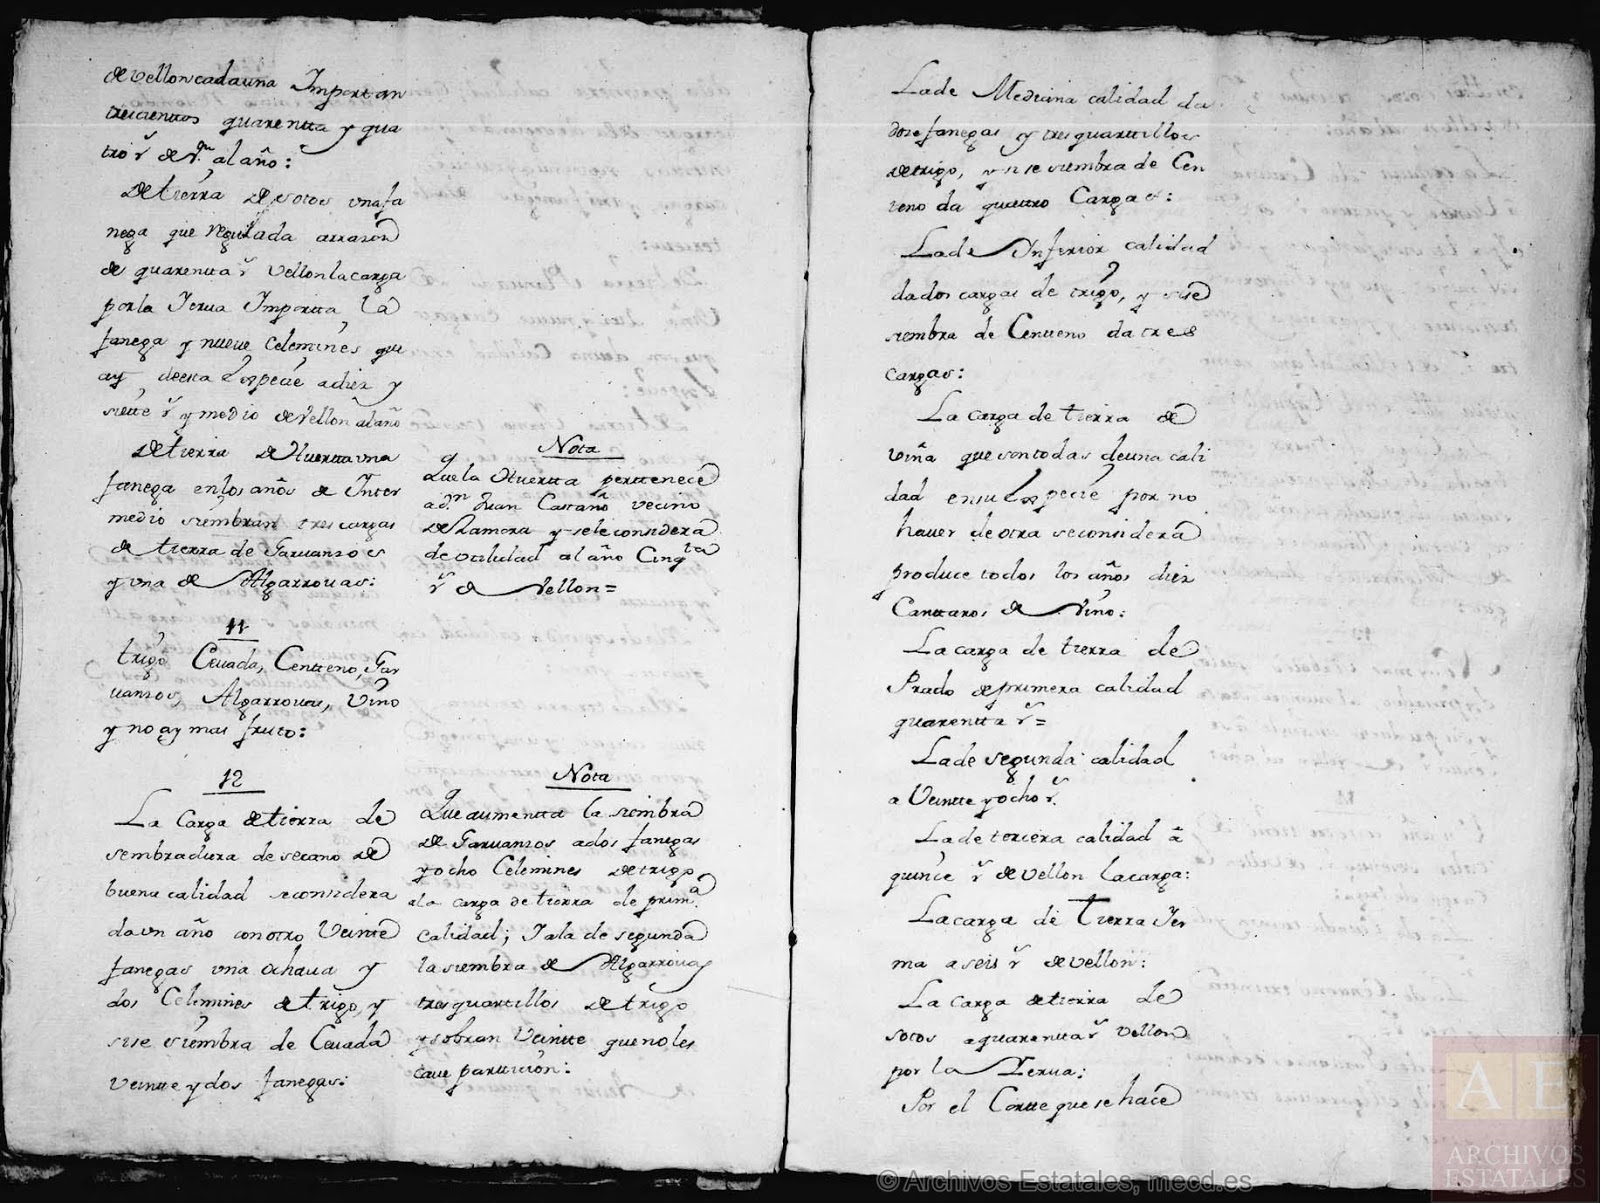 de vellon cada una Importan
trecientos quarentta y qua
tro r.s de v.n al año:
De tierra de sotos una fa
nega que regulada arrazon
de quarentta r.s vellon la carga
por la Yerua Importta, la
fanega y nueve Celemines que
ay deesta Especie a diez y
siette r.s y medio de Vellon al año
De tierra de Huertta una
fanega en los años de Inter
medio siembran tres cargas
de tierra de Garuanzos
y una de Algarrouas:
11
trigo Ceuada, Centteno, Gar
uanzos, Algarrouas, Vino
y no ay mas fruto:
12
La Carga de tierra de
sembradura de secano de
buena calidad se considera
da un año con otro Veintte
fanegas una ochaua y
dos Celemines de trigo, y
si se siembra de Ceuada
veintte y dos fanegas:
Nota
Que la Huertta perttenece
a d.n Juan Castaño vecino
de Zamora y se le considera
de utilidad al año Cinq.ta
r.s de Vellon=
Nota
Que aumentta la siembra
de Garuanzos a dos fanegas
y ocho Celemines de trigo
a la carga de tierra de prim.a
Calidad; Y a la de segunda
la siembra de Algarrouas
tres quartillos de trigo
y sobran Veintte que no les
caue parttizion:
La de Mediana calidad da
doze fanegas y tres quarttillos
de trigo, y si se siembra de Cen
teno da quattro Cargas:
La de Ynferior calidad
da dos cargas de trigo, y si se
siembra de Centteno da tres
cargas:
La carga de tierra de
viña que son todas de una cali
dad en su Especie por no
hauer de otra se considera
produce todos los años diez
Canttaros de Vino:
La carga de tierra de
Prado de primera calidad
quarentta r.s=
La de segunda calidad
a Veintte y ocho r.s
La de tercera calidad â
quince r.s de vellon la carga:
La carga de Tierra Yer
ma a seis r.s de vellon:
La Carga de tierra de
sotos a quarentta r.s vellon
por la Yerua:
Por el Cortte que se hace
© Archivos Estatales, mecd.es
AE
ARCHIVOS
ESTATALES